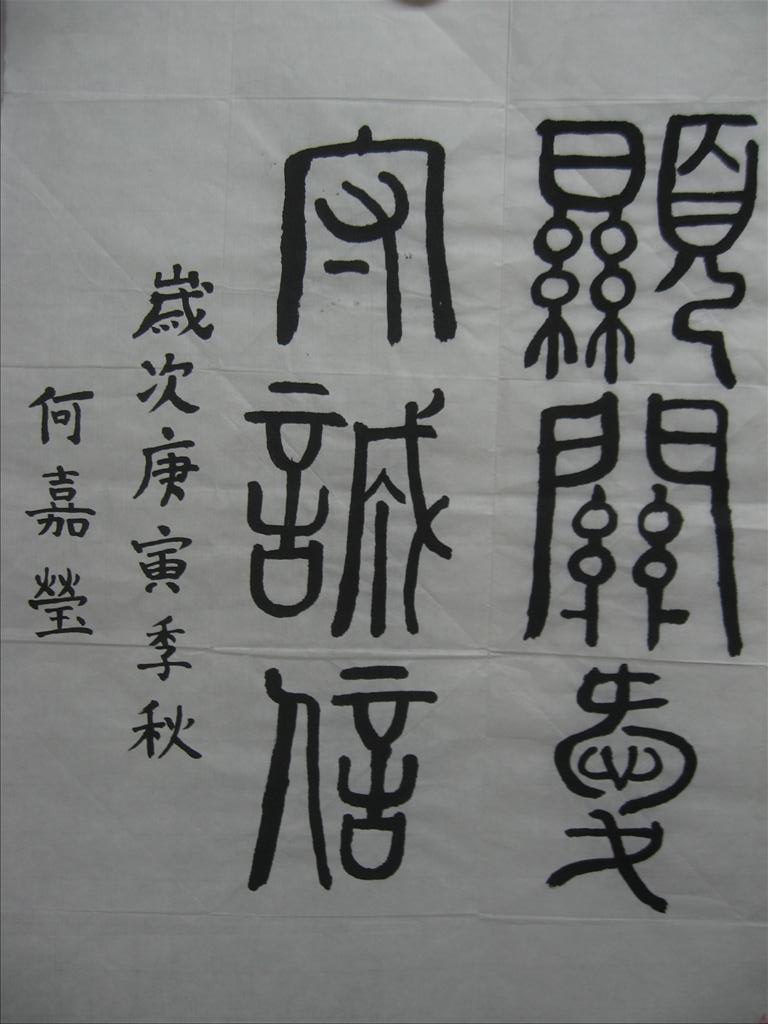 顯關愛
守誠信
歲次庚寅季秋
何嘉瑩